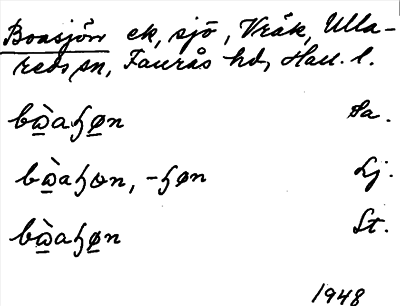 Boasjön ek, sjö, Vråk, Ulla-
reds sn, Faurås hd, Hall. l.
bὼ̲aɧø̲n Sa.
bὼ̲aɧɷn, -ɧøn Lj.
bὼ̲aɧø̲n St.
1948